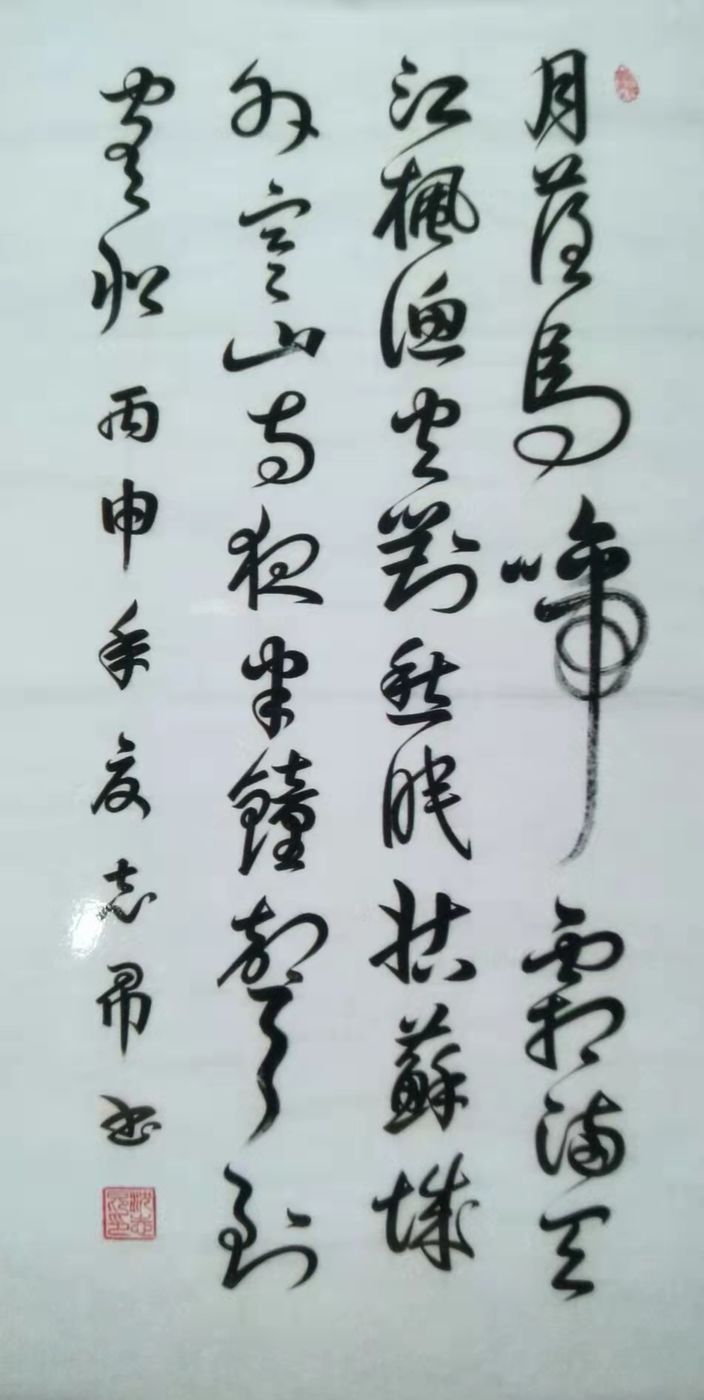 月落烏啼霜滿天
江楓漁火對愁眠姑蘇城
外寒山寺夜半鐘聲到
客船 丙申年夏志帛書